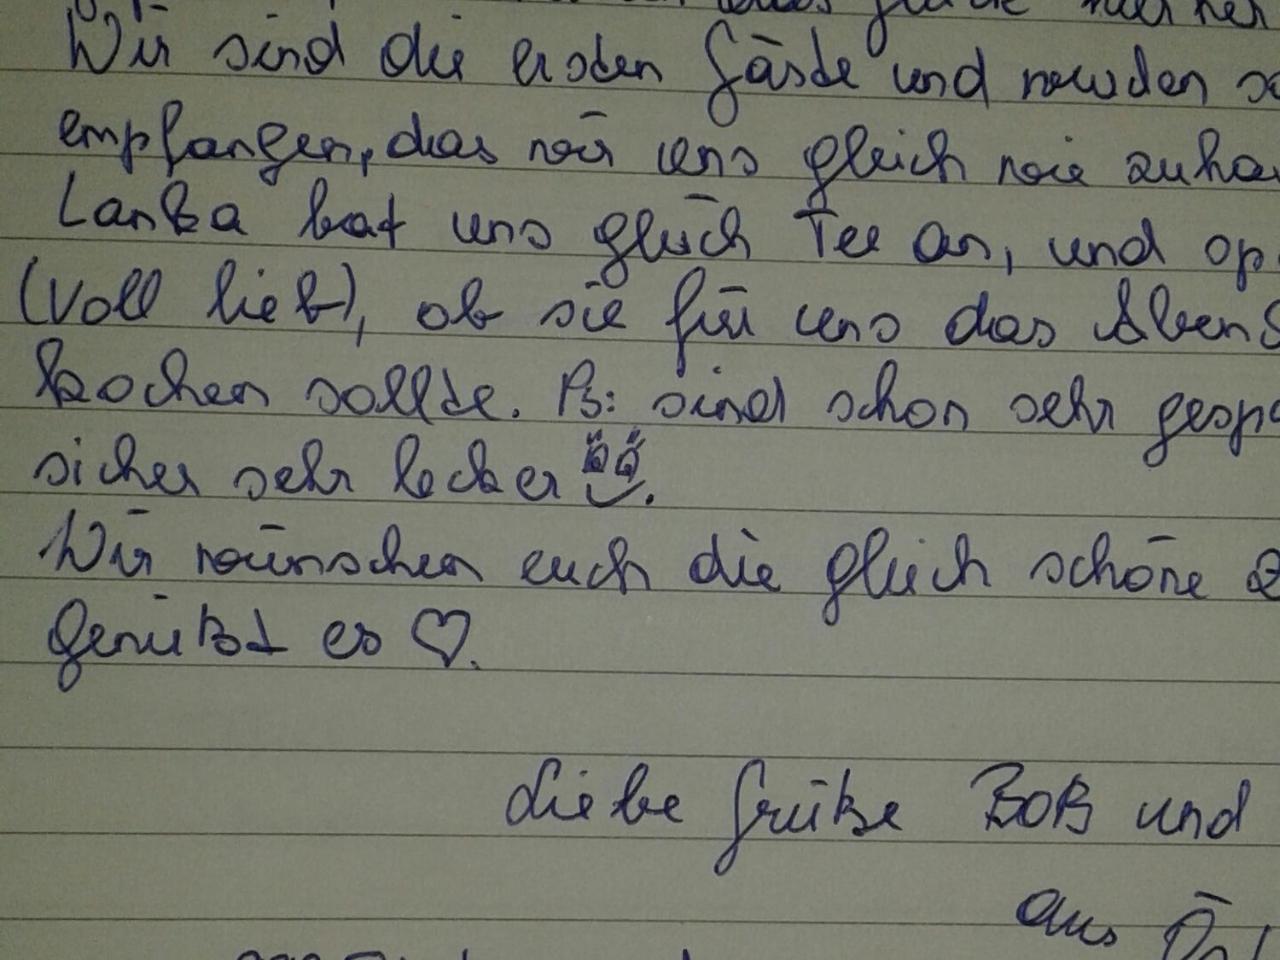 Wir sind die ersten Gäste und wurden
empfangen, das wir uns gleich wie
Lanka bat uns gleich Tee an, und
(voll lieb), ob sie für uns das
kochen sollte. PS: sind schon sehr
sicher sehr lecker.
Wir wünschen euch die gleich schöne
genüßt es ♡.
Liebe Grüße BOB und
aus